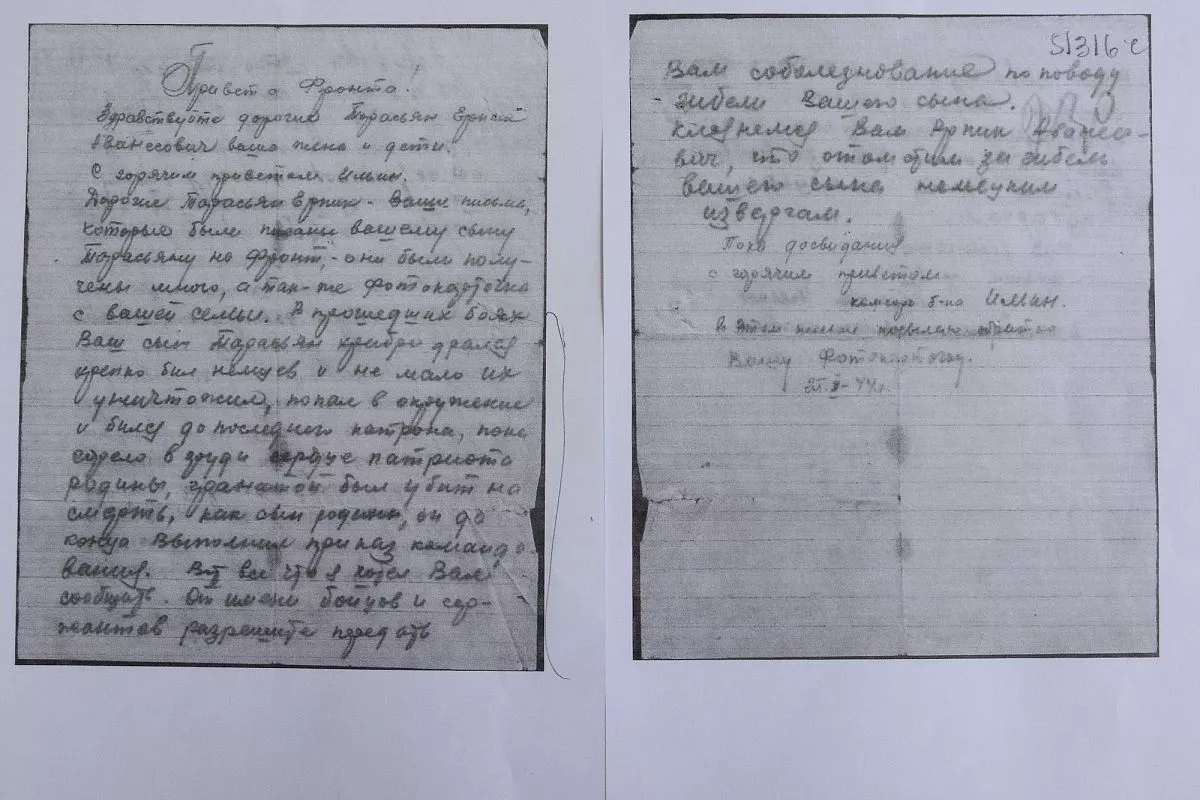 Привет с Фронта!
Здравствуйте дорогие Тарасьян Ерпик
Ванессович ваша жена и дети.
С горячим приветом Ильин.
Дорогие Тарасьян Ерпик - Ваши письма,
которые были писаны вашему сыну
Тарасьяну на Фронт, - они были полу-
чены много, а так-же Фотокарточка
с вашей семьи. В прошедших боях
Ваш сын Тарасьян храбри дрался
крепко бил немцев и не мало их
уничтожил, попал в окружение
и бился до последнего патрона, пока
в груди сердце патриота
родины, гранатой был убит на
смерть, как сын родины, он до
конца выполнил приказ командо-
вания. Вот все что я хотел Вам
сообщить. От имени бойцов и сер-
жантов разрешите передать
51316 с
Вам соболезнование по поводу
гибели Вашего сына.
клянемся Вам Арпик Аванесо-
вич, что отомстим за гибель
вашего сына немецким
извергам.
Пока досвидания
с горячим приветом
б-на Ильин.
В этом письме посылаю обратно
Вашу Фотокарточку.
44г.